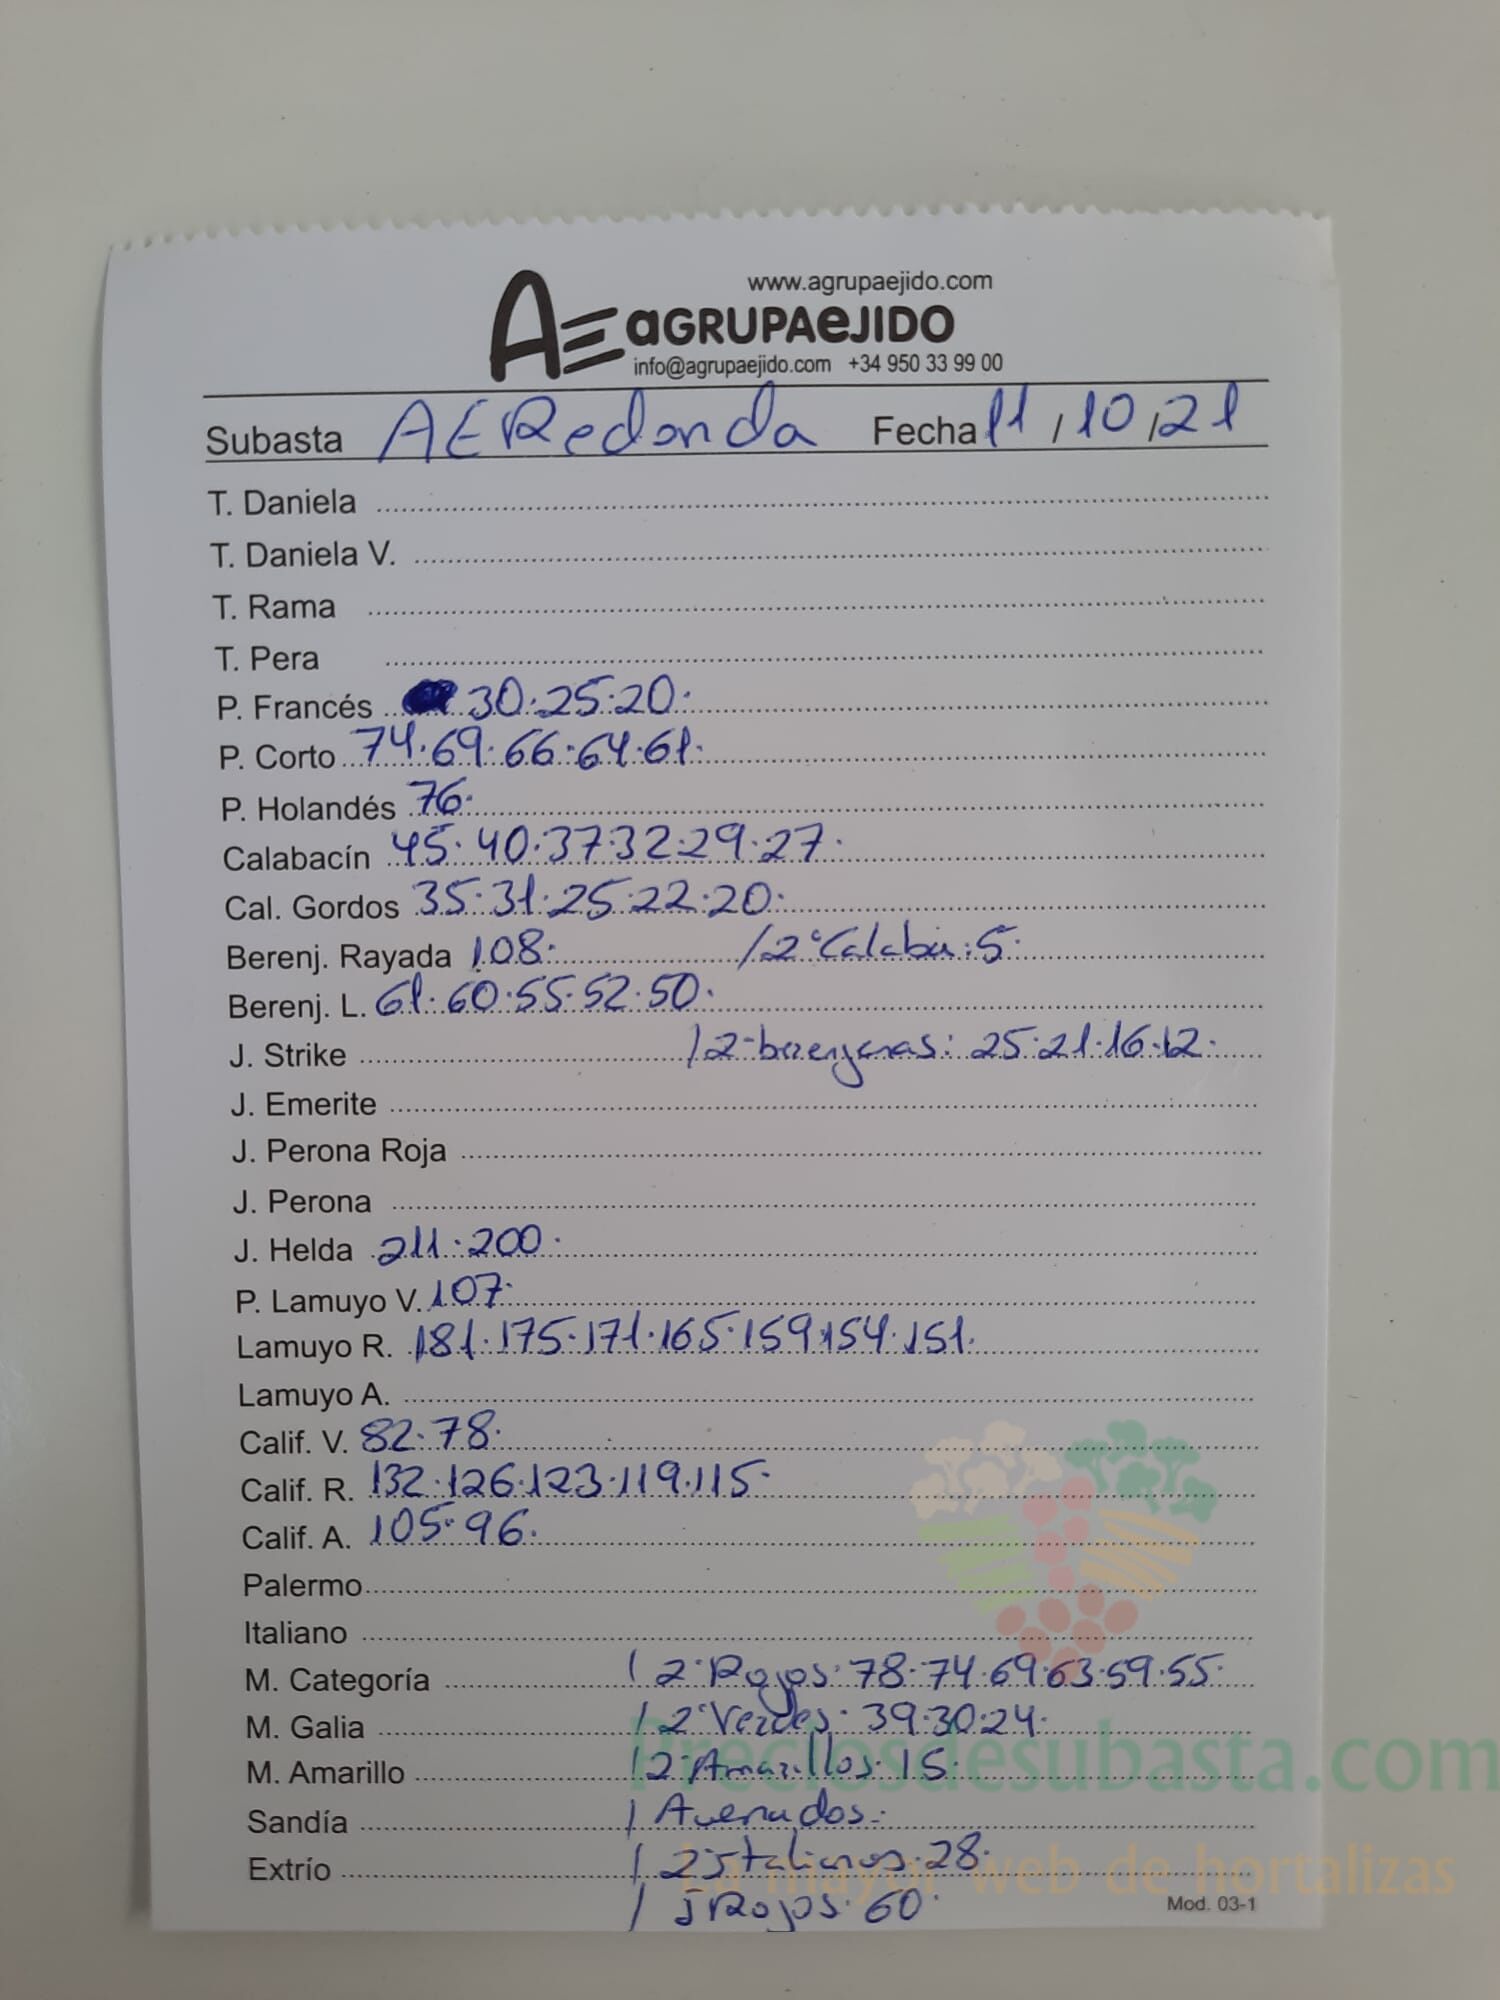 www.agrupaejido.com
AE aGRUPAeJIDO
info@agrupaejido.com +34 950 33 99 00
Subasta AERedonda Fecha 11/10/21
T. Daniela
T. Daniela V.
T. Rama
T. Pera
P. Francés 30.25.20.
P. Corto 74.69.66.64.61.
P. Holandés 76.
Calabacín 45.40.37.32.29.27.
Cal. Gordos 35.31.25.22.20.
Berenj. Rayada 108. /2ª Calabin: 5.
Berenj. L. 61.60.55.52.50.
J. Strike /2ª berenjenas: 25.21.16.12.
J. Emerite
J. Perona Roja
J. Perona
J. Helda 211.200.
P. Lamuyo V. 107.
Lamuyo R. 181.175.171.165.159.154.151.
Lamuyo A.
Calif. V. 82.78.
Calif. R. 132.126.123.119.115.
Calif. A. 105.96.
Palermo
Italiano
M. Categoría / 2ª Rojos: 78.74.69.63.59.55.
M. Galia / 2ª Verdes. 39.30.24.
M. Amarillo /2ª Amarillos. 15.
Preciosdesubasta.com
Sandía /
Extrío / 2ª Italianos. 28.
La mayor web de hortalizas
/ Rojos. 60.
Mod. 03-1